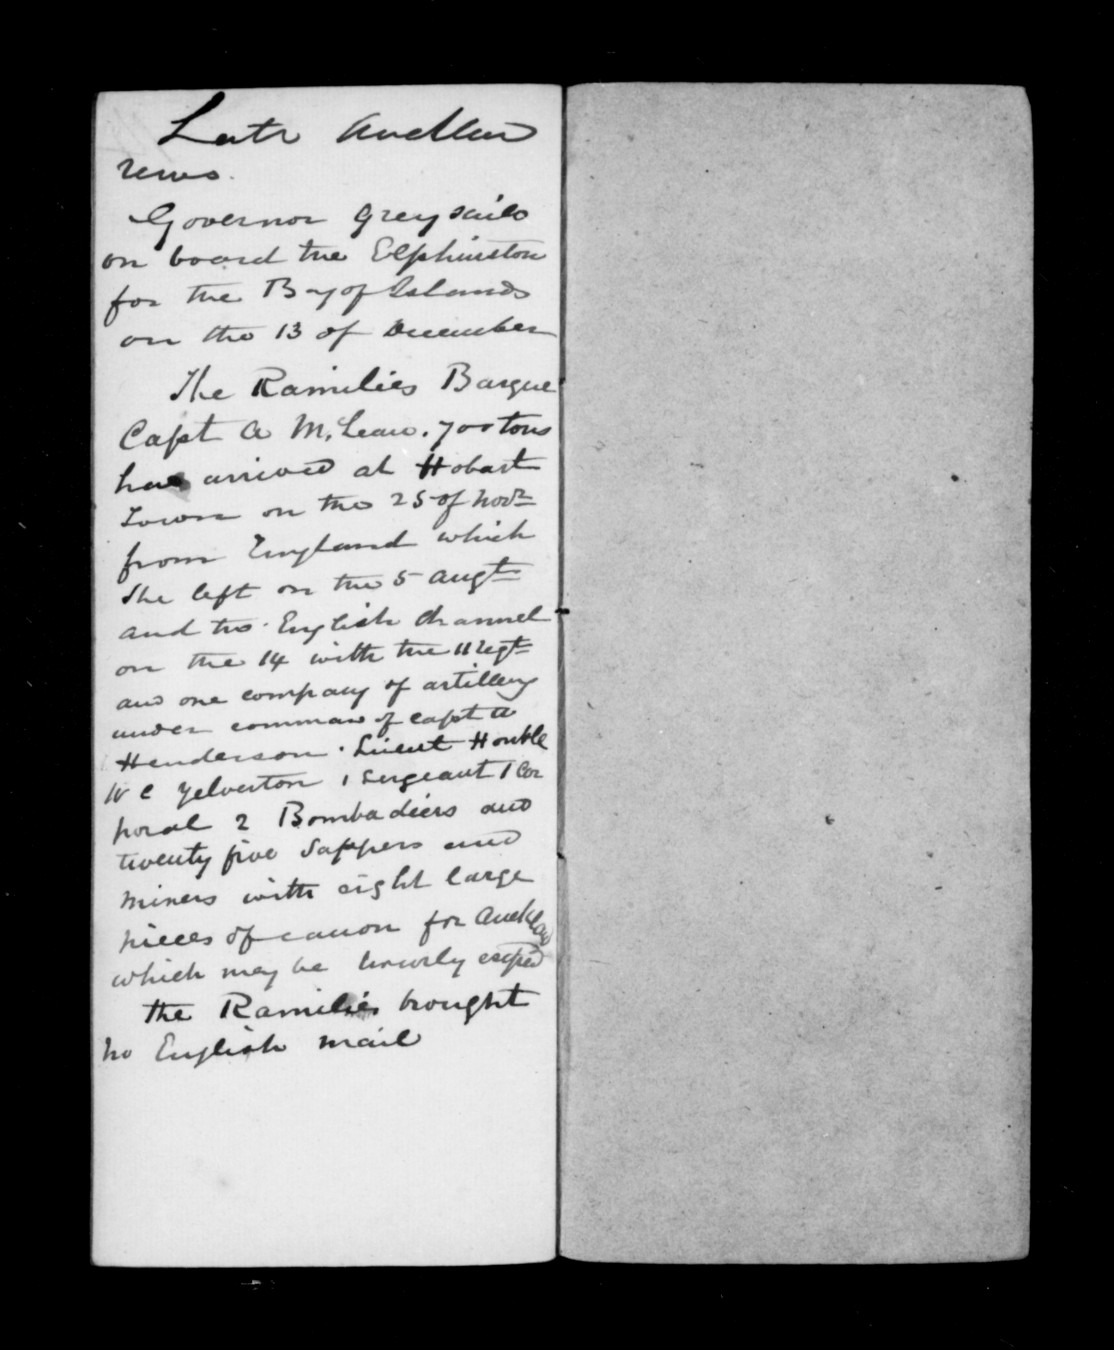 Late Aucklan
news.
Governor Grey sails
on board the Elphinston
for the Bay of Islands
on the 13 of December
The Ramilies Barque
Capt A McLean. 700 tons
has arrived at Hobart
Town on the 25 of Novr
from England which
she left on the 5 Augt
and the English Channel
on the 14 with the 11 Regt
and one company of artillery
under command of Capt A
Henderson. Lieut Honble
W C Yelverton 1 Sergeant 1 Cor
poral 2 Bombadiers and
twenty five Sappers and
miners with eight large
pieces of canon for Auckland
which may be hourly expted
the Ramilies brought
no English mail